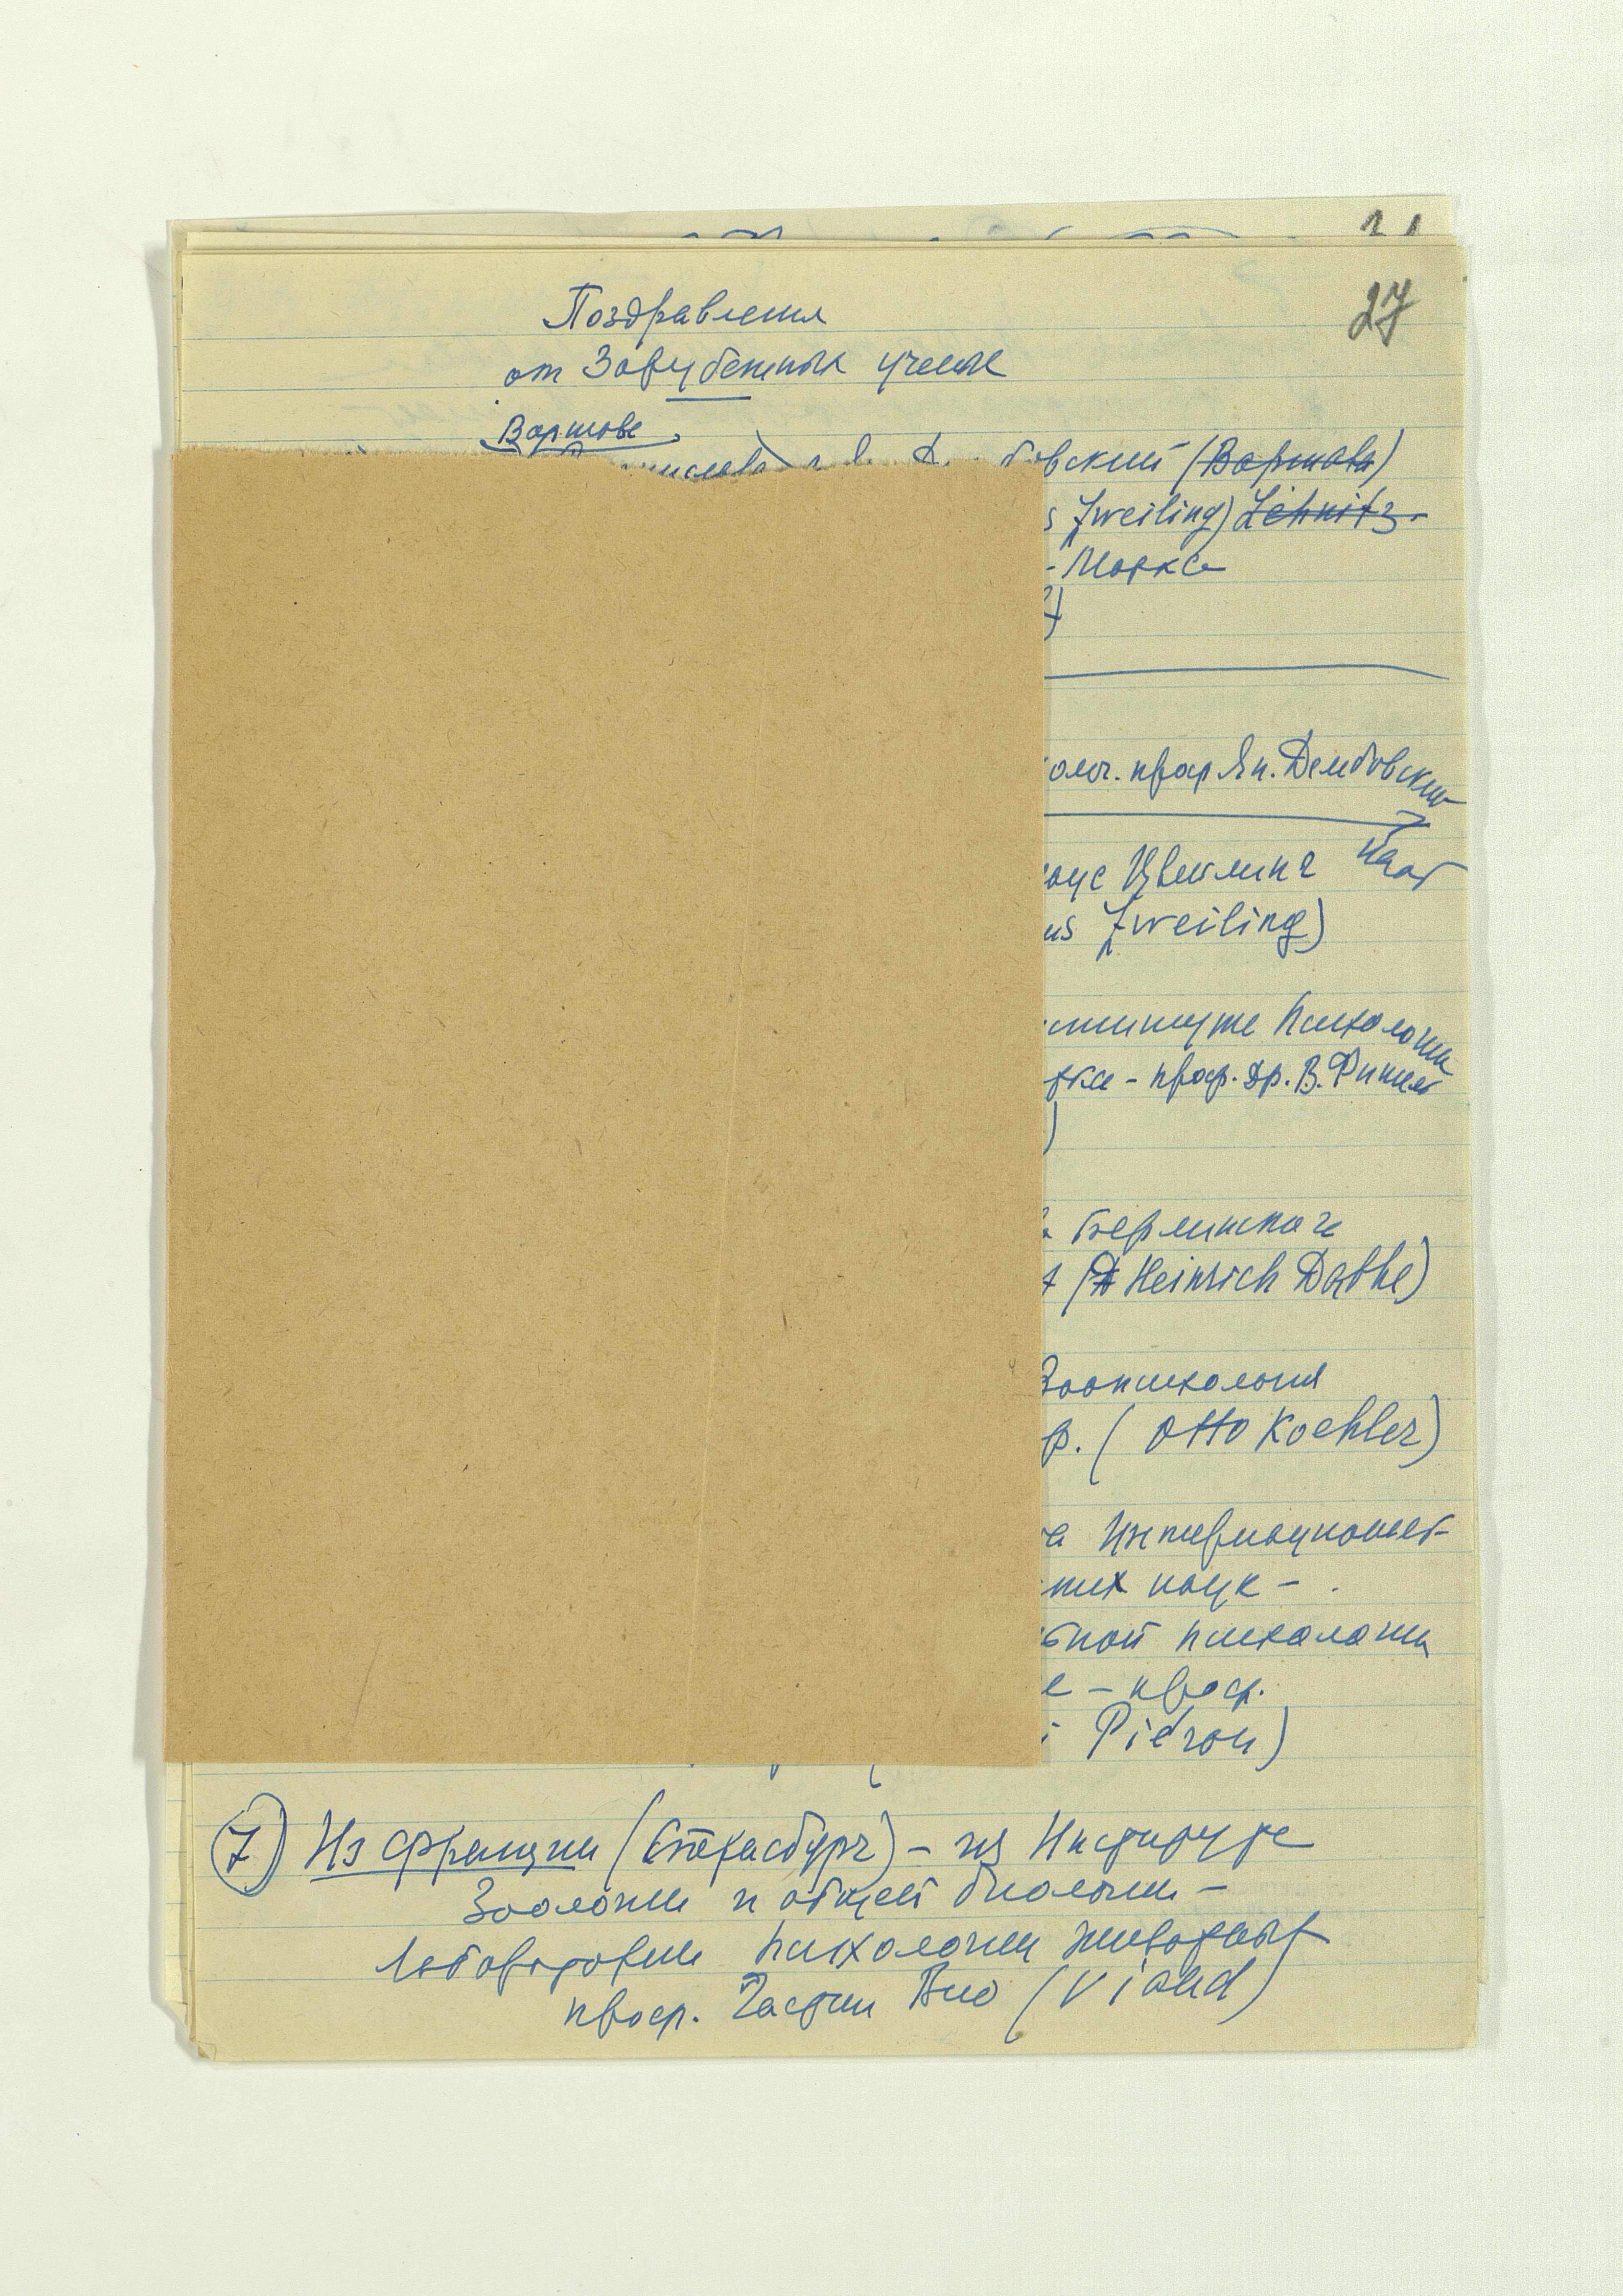 27
Поздравления
от Зарубежных ученых
Варшаве
бовский (Варшава)
s Zweiling) Lehnitz-
-Маркса
проф Ян. Дембовский
аус Цвейлинг
us Zweiling)
институте Психологии
ркса - проф. Др. В. Фишель
)
Берлинского
(Heinrich Dathe)
Зоопсихология
ф. (Otto Koehler)
Интернациональ-
ких наук -
ьной психологии
е - проф.
i Piéron)
7) Из Франции (Страсбург) - из Института
Зоологии и общей биологии -
Лаборатории психологии животных
проф. Гастон Вио (Viaud)